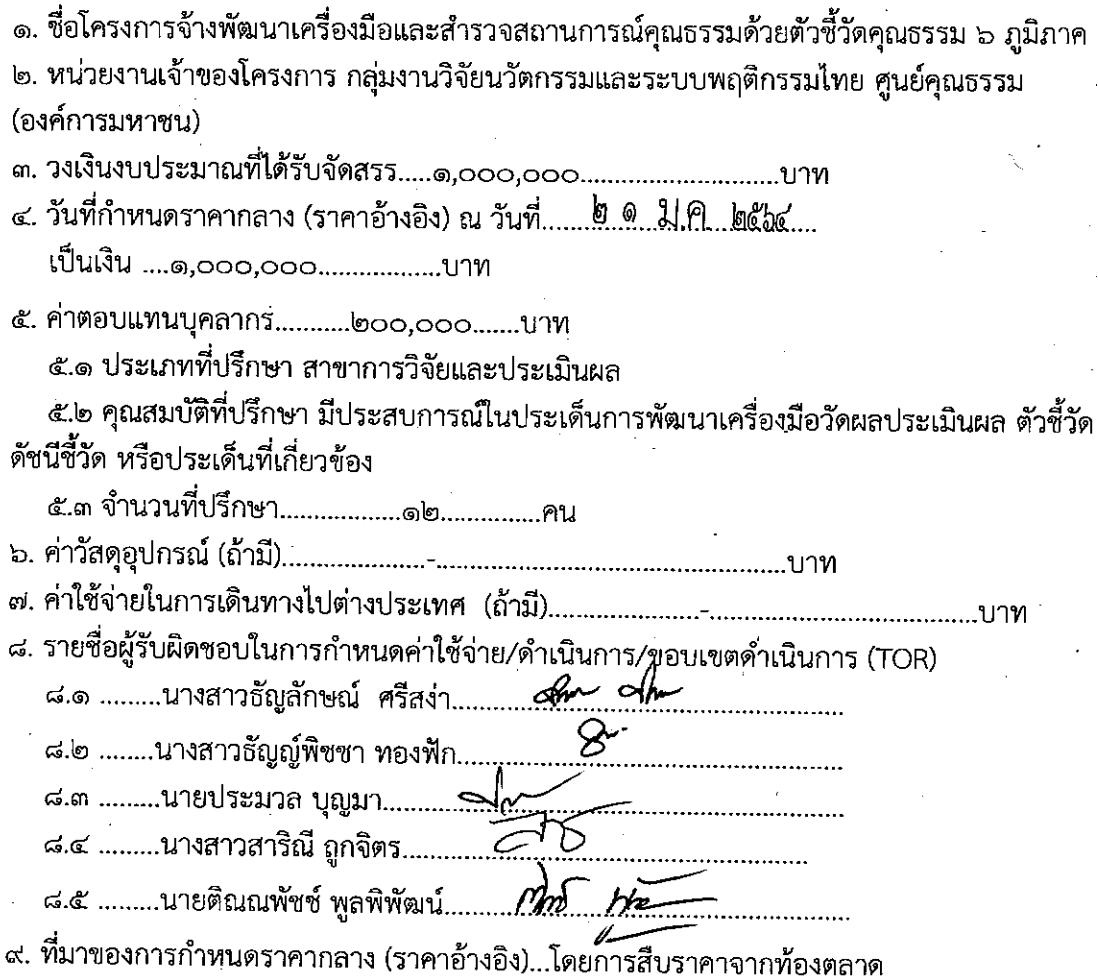 ๑. ชื่อโครงการจ้างพัฒนาเครื่องมือและสำรวจสถานการณ์คุณธรรมด้วยตัวชี้วัดคุณธรรม ๖ ภูมิภาค
๒. หน่วยงานเจ้าของโครงการ กลุ่มงานวิจัยนวัตกรรมและระบบพฤติกรรมไทย ศูนย์คุณธรรม
(องค์การมหาชน)
๓. วงเงินงบประมาณที่ได้รับจัดสรร.....๑,๐๐๐,๐๐๐..............................บาท
๔. วันที่กำหนดราคากลาง (ราคาอ้างอิง) ณ วันที่.......๒ ๑ ม.ค. ๒๕๖๔....
เป็นเงิน ....๑,๐๐๐,๐๐๐...................บาท
๕. ค่าตอบแทนบุคลากร...........๒๐๐,๐๐๐.......บาท
๕.๑ ประเภทที่ปรึกษา สาขาการวิจัยและประเมินผล
๕.๒ คุณสมบัติที่ปรึกษา มีประสบการณ์ในประเด็นการพัฒนาเครื่องมือวัดผลประเมินผล ตัวชี้วัด
ดัชนีชี้วัด หรือประเด็นที่เกี่ยวข้อง
๕.๓ จำนวนที่ปรึกษา..................๑๒...............คน
๖. ค่าวัสดุอุปกรณ์ (ถ้ามี)......................-....................................................บาท
๗. ค่าใช้จ่ายในการเดินทางไปต่างประเทศ (ถ้ามี)......................-.......................................บาท
๘. รายชื่อผู้รับผิดชอบในการกำหนดค่าใช้จ่าย/ดำเนินการ/ขอบเขตดำเนินการ (TOR)
๘.๑ .........นางสาวธัญลักษณ์ ศรีสง่า.........................................................
๘.๒ ........นางสาวธัญญ์พิชชา ทองฟัก.......................................................
๘.๓ .........นายประมวล บุญมา..................................................................
๘.๔ .........นางสาวสาริณี ถูกจิตร............................................................
๘.๕ .........นายติณณพัชช์ พูลพิพัฒน์..........................................................
๙. ที่มาของการกำหนดราคากลาง (ราคาอ้างอิง)...โดยการสืบราคาจากท้องตลาด